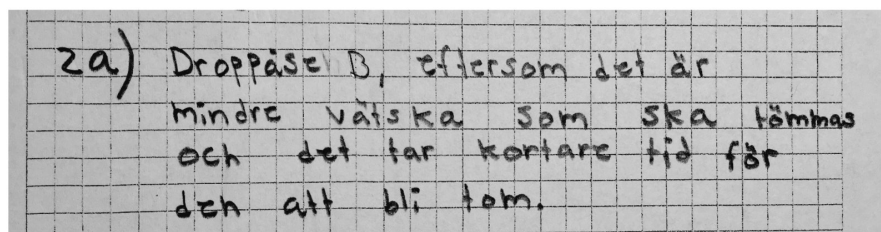 2a) Droppåse B, eftersom det är
mindre vätska som ska tömmas
och det tar kortare tid för
den att bli tom.